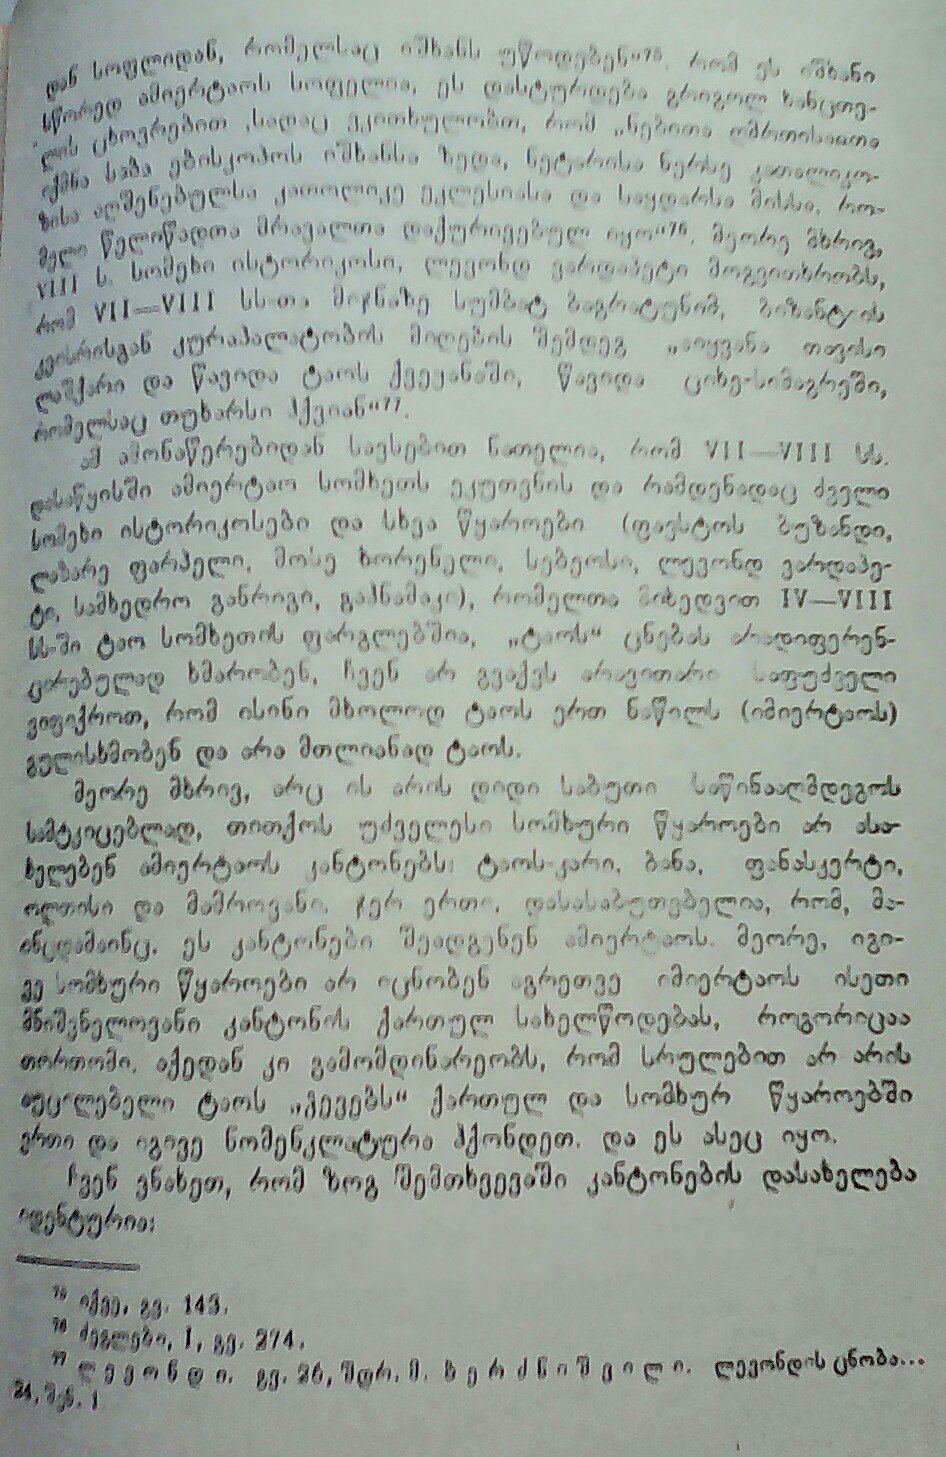 დან სოფლიდან, რომელსაც იშხანს უწოდებენ“⁷⁵. რომ ეს იშხანი
სწორედ ამიერტაოს სოფელია, ეს დასტურდება გრიგოლ ხანცთე-
ლის ცხოვრებით, სადაც ვკითხულობთ, რომ „ნებითა ღმრთისაითა
იქმნა საბა ებისკოპოს იშხანსა ზედა, ნეტარისა ნერსე კათალიკო-
ზისა აღშენებულსა კათოლიკე ეკლესიასა და საყდარსა მისსა, რო-
მელი წელიწადთა მრავალთა დაქურივებულ იყო“⁷⁶. მეორე მხრივ,
VIII ს. სომეხი ისტორიკოსი, ლევონდ ვარდაპეტი მოგვითხრობს,
რომ VII—VIII სს-თა მიჯნაზე სუმბატ ბაგრატუნიმ, ბიზანტიის
კეისრისგან კურაპალატობის მიღების შემდეგ „აიყვანა თავისი
ლაშქარი და წავიდა ტაოს ქვეყანაში, წავიდა ციხე-სიმაგრეში,
რომელსაც თუხარსი ჰქვიან“⁷⁷.
ამ ამონაწერებიდან სავსებით ნათელია, რომ VII—VIII სს.
დასაწყისში ამიერტაო სომხეთს ეკუთვნის და რამდენადაც ძველი
სომეხი ისტორიკოსები და სხვა წყაროები (ფავსტოს ბუზანდი,
ლაზარე ფარპელი, მოსე ხორენელი, სებეოსი, ლევონდ ვარდაპე-
ტი, სამხედრო განრიგი, გაჰნამაკი), რომელთა მიხედვით IV—VIII
სს-ში ტაო სომხეთის ფარგლებშია, „ტაოს“ ცნებას არადიფერენ-
ცირებულად ხმარობენ, ჩვენ არ გვაქვს არავითარი საფუძველი
ვიფიქროთ, რომ ისინი მხოლოდ ტაოს ერთ ნაწილს (იმიერტაოს)
გულისხმობენ და არა მთლიანად ტაოს.
მეორე მხრივ, არც ის არის დიდი საბუთი საწინააღმდეგოს
სამტკიცებლად, თითქოს უძველესი სომხური წყაროები არ ასა-
ხელებენ ამიერტაოს კანტონებს: ტაოს-კარი, ბანა, ფანასკერტი,
ოლთისი და მამროვანი. ჯერ ერთი, დასასაბუთებელია, რომ, მა-
ინცდამაინც, ეს კანტონები შეადგენენ ამიერტაოს. მეორე, იგი-
ვე სომხური წყაროები არ იცნობენ აგრეთვე იმიერტაოს ისეთი
მნიშვნელოვანი კანტონის ქართულ სახელწოდებას, როგორიცაა
თორთომი. აქედან კი გამომდინარეობს, რომ სრულებით არ არის
აუცილებელი ტაოს „ხევებს“ ქართულ და სომხურ წყაროებში
ერთი და იგივე ნომენკლატურა ჰქონდეთ. და ეს ასეც იყო.
ჩვენ ვნახეთ, რომ ზოგ შემთხვევაში კანტონების დასახელება
იდენტურია:
⁷⁵ იქვე, გვ. 143.
⁷⁶ ძეგლები, 1, გვ. 274.
⁷⁷ ლევონდი, გვ. 26, შდრ. მ. ბერძნიშვილი, ლევონდის ცნობა...
24, შენ. 1